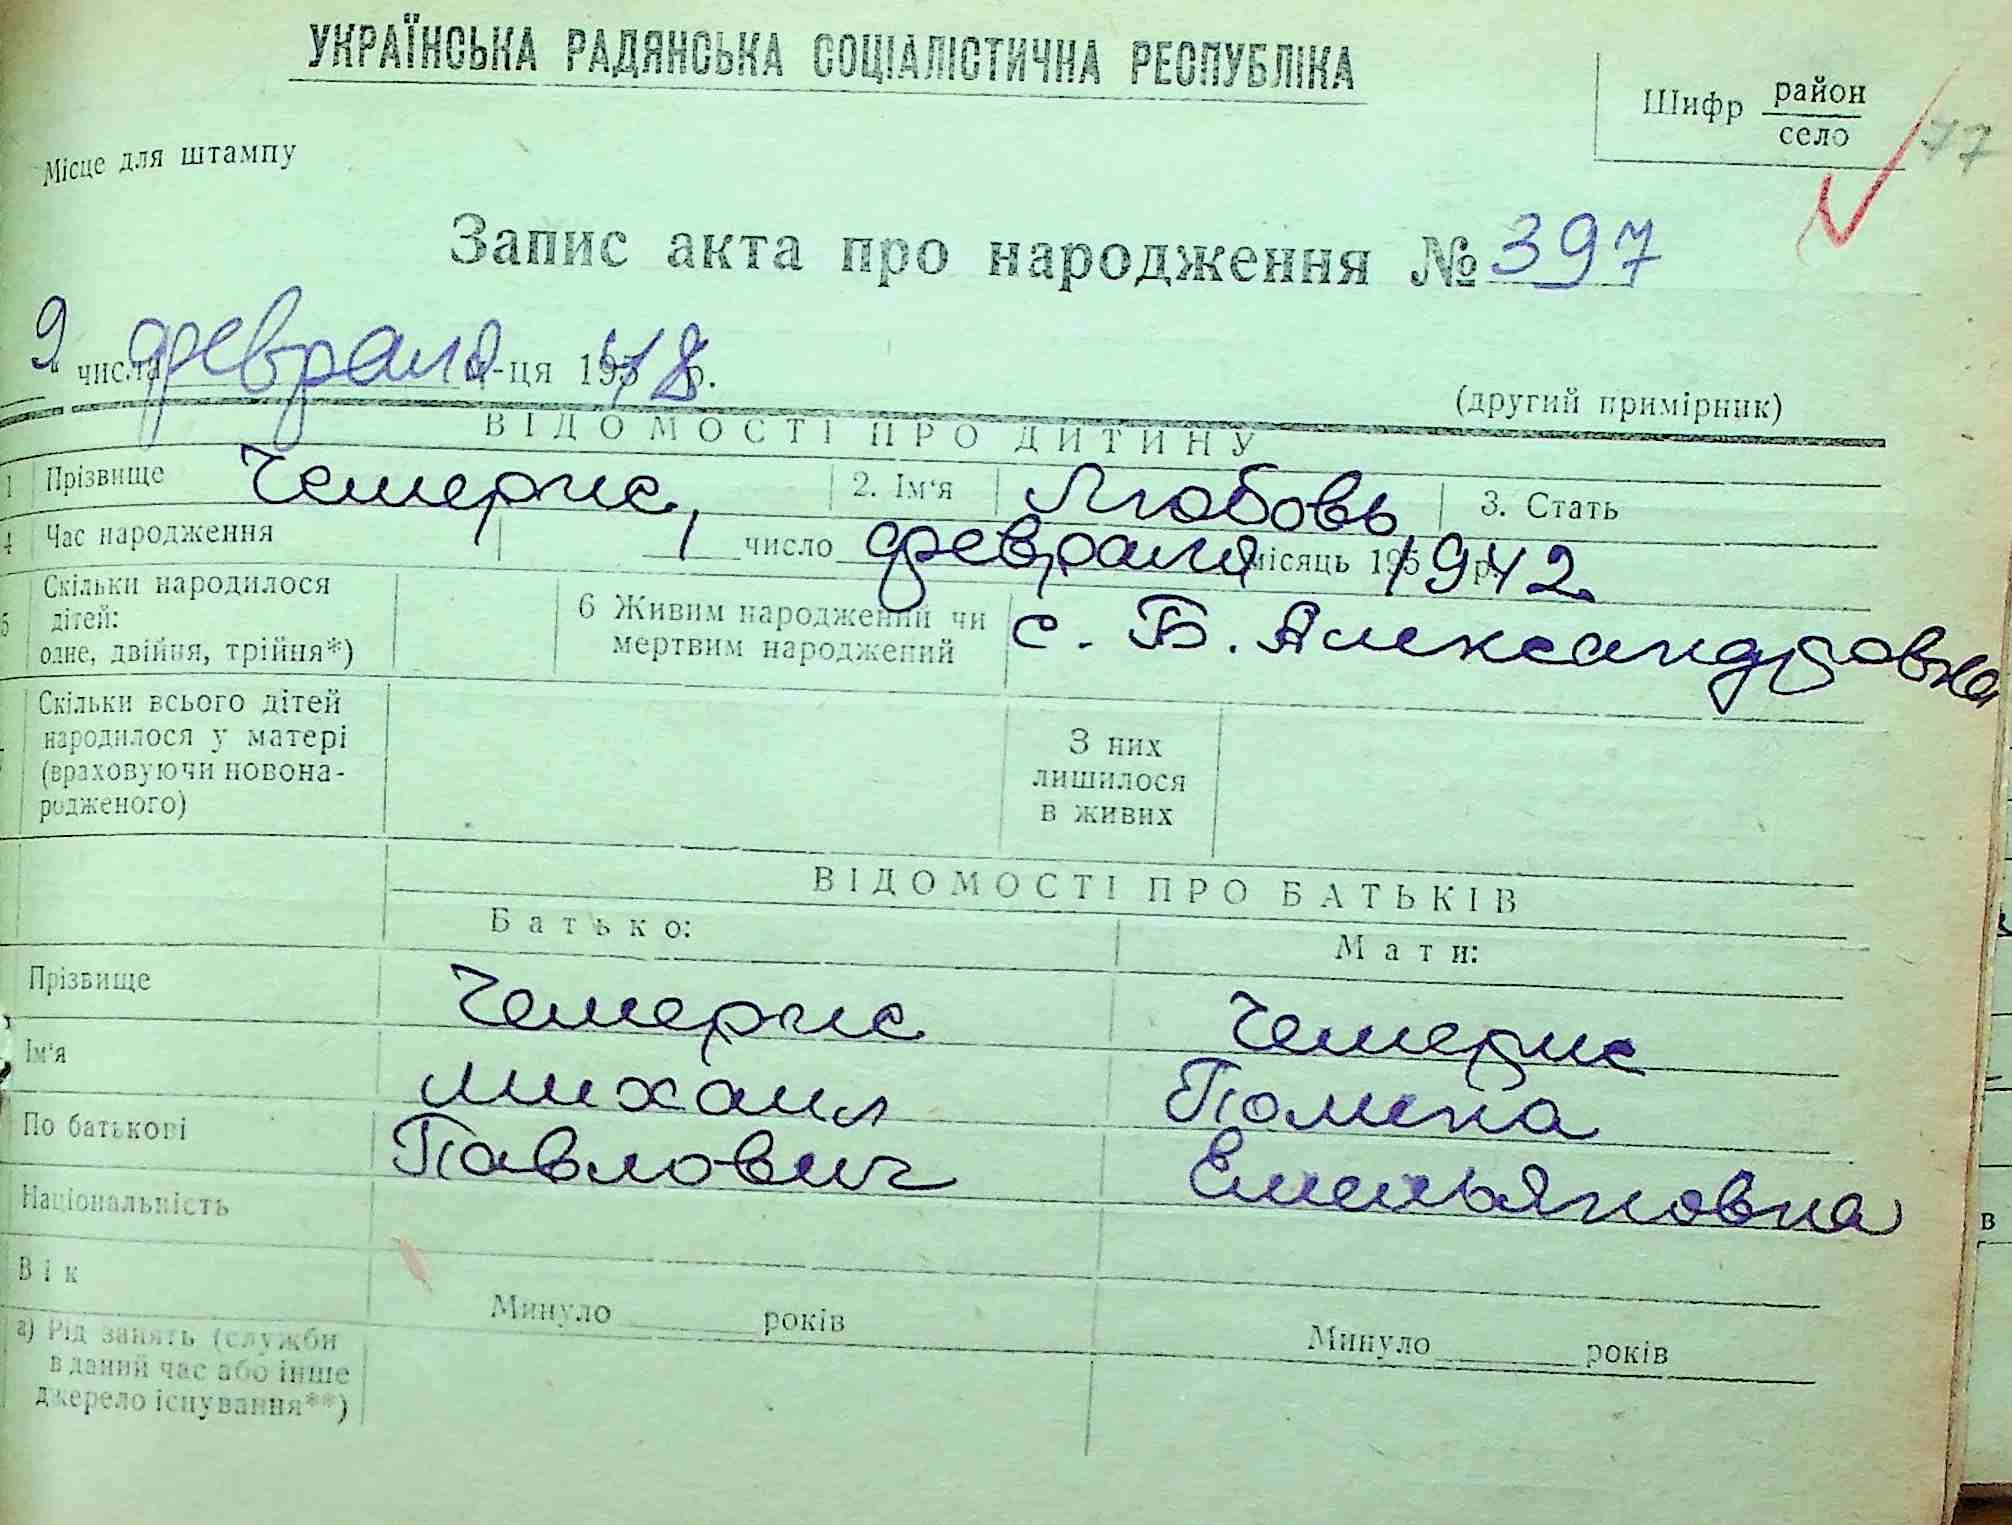 УКРАЇНСЬКА РАДЯНСЬКА СОЦІАЛІСТИЧНА РЕСПУБЛІКА
Шифр район
село
77
Місце для штампу
Запис акта про народження № 397
9 числа февраля м-ця 195 р.
(другий примірник)
ВІДОМОСТІ ПРО ДИТИНУ
1 Прізвище Чемерис 2. Ім‘я Любовь 3. Стать
4 Час народження 1 число февраля місяць 195 1942 р.
5 Скільки народилося дітей: одне, двійня, трійня*)
6 Живим народжений чи мертвим народжений с. Б. Александровка
Скільки всього дітей народилося у матері (враховуючи новона-родженого)
З них лишилося в живих
ВІДОМОСТІ ПРО БАТЬКІВ
Батько: Мати:
Прізвище Чемерис Чемерис
Ім‘я Михаил
По батькові Павлович Емельяновна
Національність
Вік Минуло років Минуло років
а) Рід занять (служби в даний час або інше джерело існування**)
в